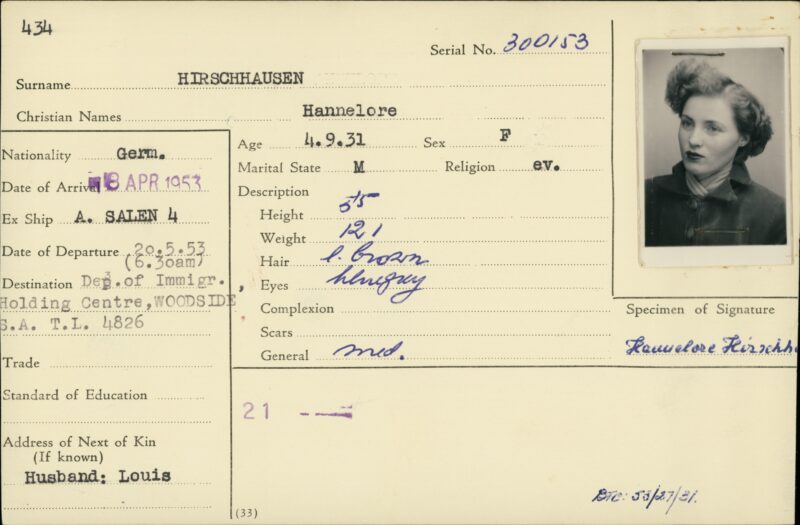 434
Serial No. 300153
Surname HIRSCHHAUSEN
Christian Names Hannelore
Nationality Germ.
Date of Arrival 8 APR 1953
Ex Ship A. SALEN 4
Date of Departure 20.5.53
(6.30am)
Destination Dep. of Immigr.,
Holding Centre, WOODSIDE
S.A. T.L. 4826
Trade
Standard of Education
Address of Next of Kin
(If known)
Husband: Louis
Age 4.9.31 Sex F
Marital State M Religion ev.
Description
Height 5'5
Weight 121
Hair l. brown
Eyes
Complexion
Scars
General med.
21
(33)
Specimen of Signature
Hannelore Hirschh
53/27/31.